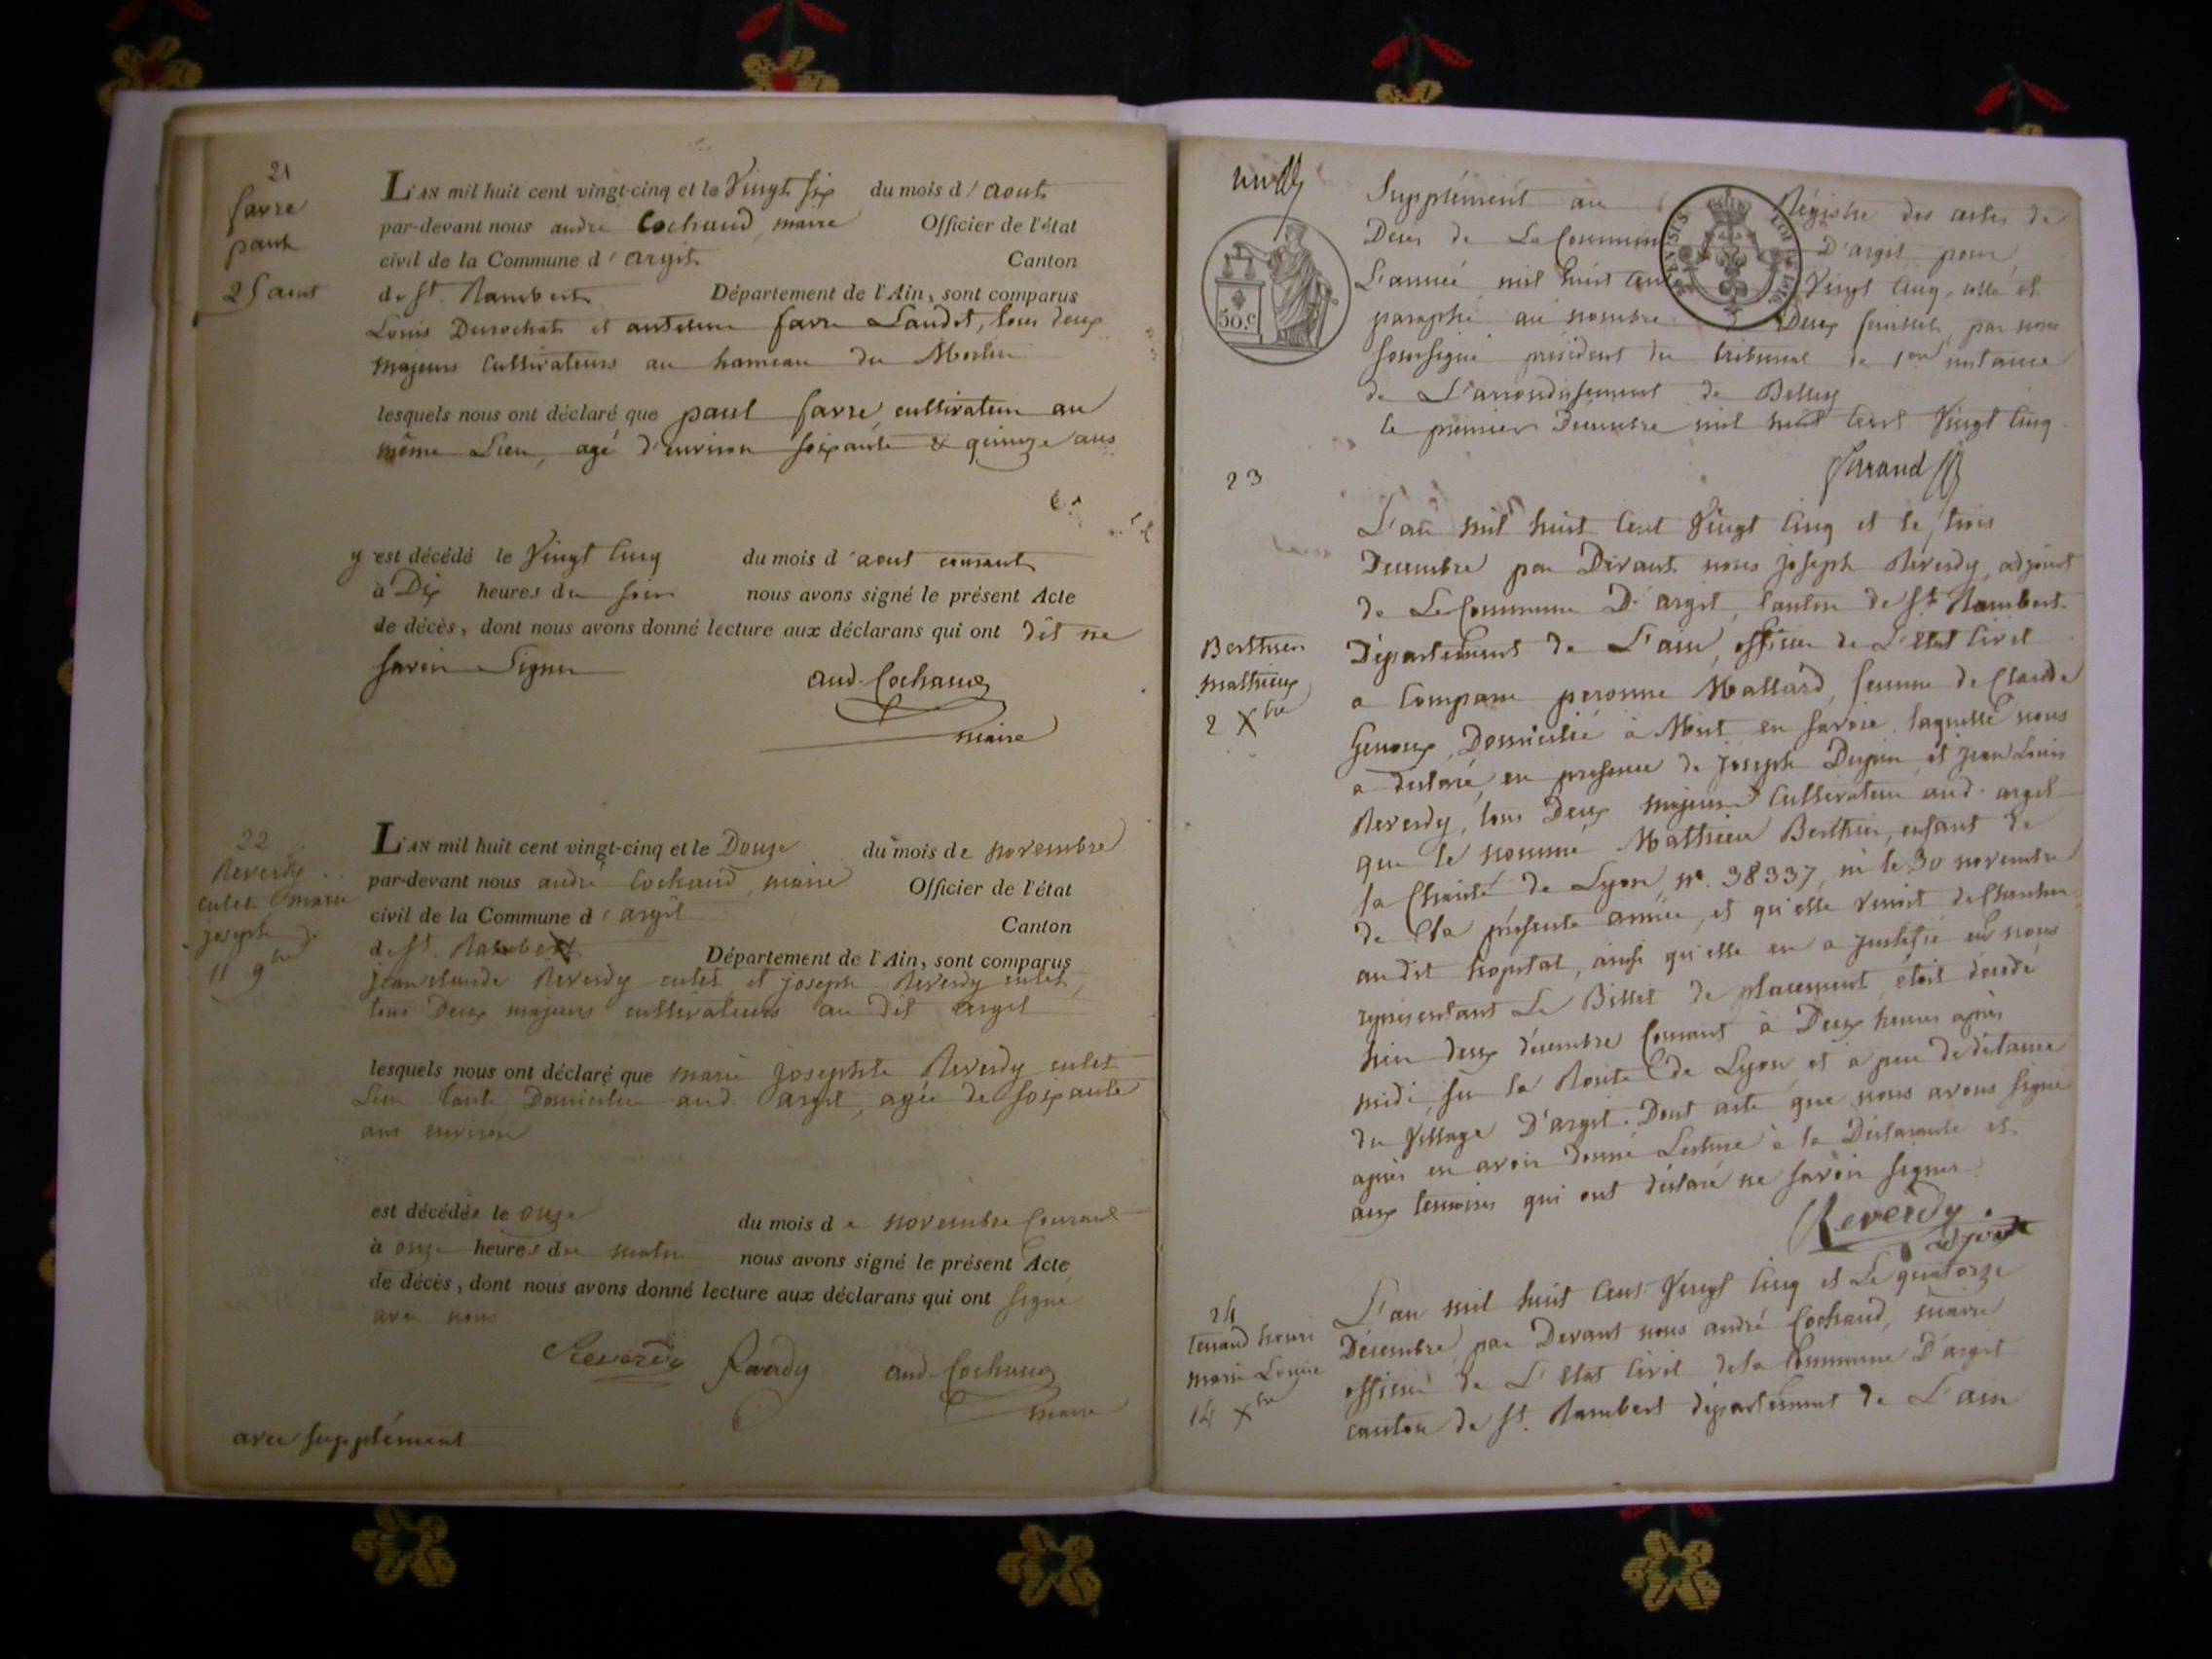 21
favre
paul
25 aout
L'AN mil huit cent vingt-cinq et le Vingt six du mois d'aout
par-devant nous andré Cochaud, maire Officier de l'état
civil de la Commune d'argit Canton
de St. Rambert Département de l'Ain, sont comparus
Louis Durochat et antelme favre Landot, tous deux
majeurs Cultivateurs au hameau du Morlin
lesquels nous ont déclaré que paul favre, cultivateur au
même Lieu, agé d'environ soixante & quinze ans
y est décédé le Vingt Cinq du mois d'aout courant
à Dix heures du soir nous avons signé le présent Acte
de décès, dont nous avons donné lecture aux déclarans qui ont dit ne
savoir Signer
and. Cochaud
maire
22
Reverdy
culet marie
joseph
11 9bre
L'AN mil huit cent vingt-cinq et le Douze du mois de novembre
par-devant nous andré Cochaud, maire Officier de l'état
civil de la Commune d'argit Canton
de St. Rambert Département de l'Ain, sont comparus
jean claude Reverdy culet et joseph Reverdy culet,
tous Deux majeurs cultivateurs au dit argit
lesquels nous ont déclaré que marie josephte Reverdy culet
Domiciliée aud. argit, agée de soixante
ans environ
est décédée le onze du mois de novembre Courant
à onze heures du matin nous avons signé le présent Acte
de décès, dont nous avons donné lecture aux déclarans qui ont signé
avec nous
Reverdy Reverdy and. Cochaud
maire
avec supplément
Supplément au Régistre des actes de
Décès de La Commune D'argit pour
L'année mil huit cent Vingt Cinq, collé et
paraphé au nombre de Deux feuillets, par nous
soussigné président du tribunal de 1ere instance
de L'arrondissement de Belley
le premier Décembre mil huit Cent Vingt Cinq
50.C
23
Berthier
mathieux
2 Xbre
L'an mil huit Cent Vingt Cinq et le trois
Décembre par Devant nous joseph Reverdy, adjoint
de La Commune D'argit, Canton de St Rambert
Département de L'ain, officier de L'Etat Civil
a Comparu peronne Mallard, femme de Claude
Genoux, Domiciliée à Mut en Savoie, laquelle nous
a déclaré, en présence de joseph Dupin et jean Louis
Reverdy, tous Deux majeurs Cultivateurs aud. argit
que le nommé Mathieu Berthier, enfant de
la Charité de Lyon, n°. 38337, né le 30 novembre
de la présente année, et qu'elle venoit de Chercher
au dit hopital, ainsi qu'elle en a justifié en nous
représentant Le Billet de placement, étoit décédé
hier deux décembre Courant à Deux heures après
midi, sur la Route de Lyon, et à peu de distance
du Village D'argit. Dont acte que nous avons signé
après en avoir donné Lecture à la Déclarante et
aux temoins qui ont déclaré ne savoir signer.
Reverdy
adjoint
24
marie Louise
14 Xbre
L'an mil huit Cent Vingt Cinq et Le quatorze
Décembre, par Devant nous andré Cochaud, maire
officier de L'Etat Civil de la Commune D'argit
canton de St. Rambert département de L'ain